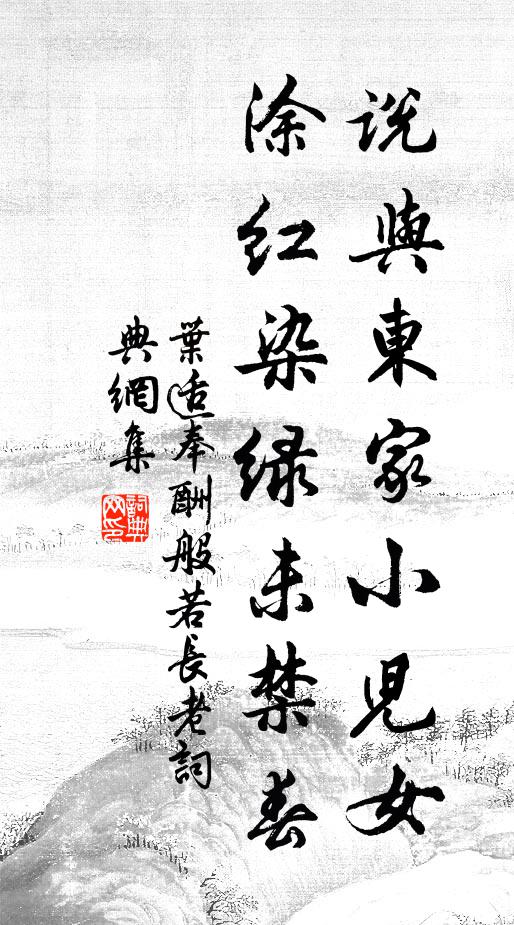 說與東家小兒女
涂紅染綠未禁春
葉适奉酬般若長老詞
典網集
詞典網印